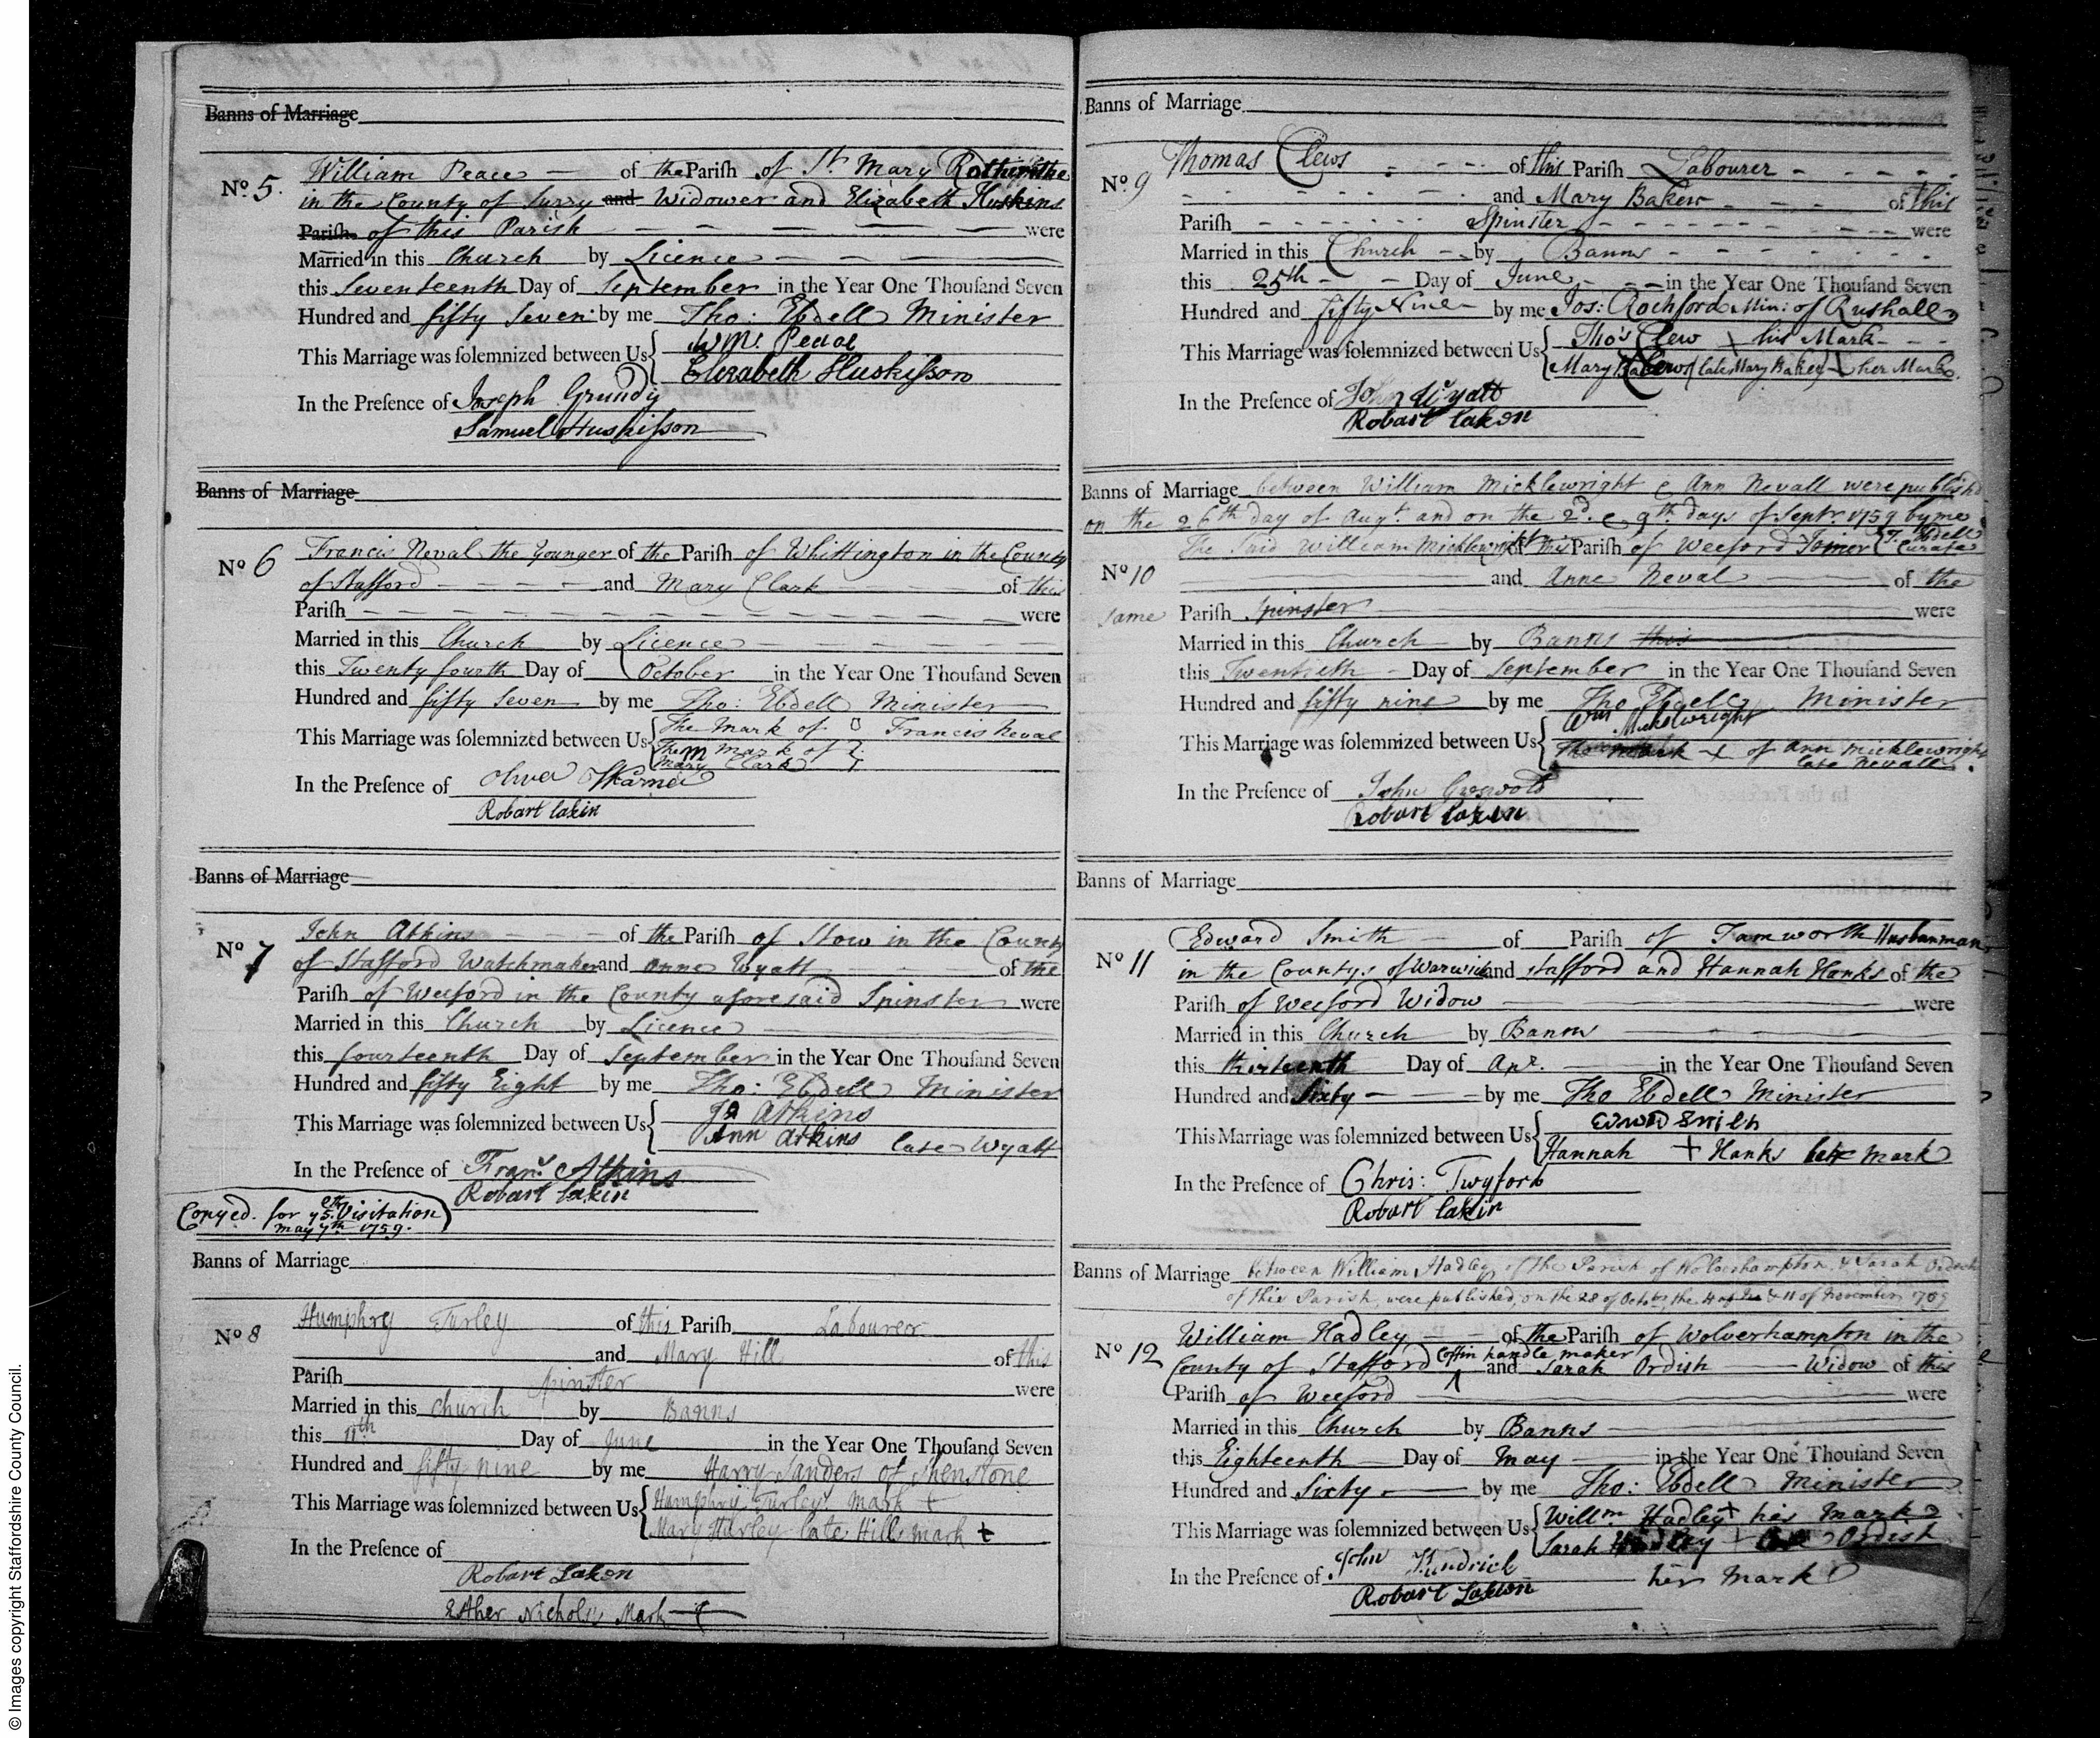 Banns of Marriage
No. 5. William Peace of the Parish of St. Mary Rotherithe
in the County of Surry and Widower and Elizabeth Huskins
Parish of this Parish were
Married in this Church by Licence
this Seventeenth Day of September in the Year One Thousand Seven
Hundred and fifty Seven by me Tho: Ebdell Minister
This Marriage was solemnized between Us Wm. Peace
Elizabeth Huskisson
In the Presence of Joseph Grundy
Samuel Huskisson
Banns of Marriage
No 6 Francis Neval the Younger of the Parish of Whittington in the County
of Stafford and Mary Clark of this
Parish were
Married in this Church by Licence
this Twenty fourth Day of October in the Year One Thousand Seven
Hundred and fifty Seven by me Tho: Ebdell Minister
This Marriage was solemnized between Us The Mark of Francis Neval
The m mark of
Mary Clark
In the Presence of Oliver
Robart lakin
Banns of Marriage
No 7 John Atkins of the Parish of Stow in the County
of Stafford Watchmaker and Anne Wyatt of the
Parish of Weeford in the County aforesaid Spinster were
Married in this Church by Licence
this fourteenth Day of September in the Year One Thousand Seven
Hundred and fifty Eight by me Tho: Ebdell Minister
This Marriage was solemnized between Us Jo Atkins
Ann Atkins late Wyatt
In the Presence of Frans Atkins
Robart lakin
Copyed for ye Visitation
may 7th 1759.
Banns of Marriage
No 8 Humphry Turley of this Parish Labourer
and Mary Hill of this
Parish Spinster were
Married in this Church by Banns
this 11th Day of June in the Year One Thousand Seven
Hundred and fifty nine by me Harry Sanders of Shenstone
This Marriage was solemnized between Us Humphry Turley mark +
Mary Thurley late Hills mark +
In the Presence of
Robart Lakon
Esther Nichols's Mark
Banns of Marriage
No 9 Thomas Clews of this Parish Labourer
and Mary Baker of this
Parish Spinster were
Married in this Church by Banns
this 25th Day of June in the Year One Thousand Seven
Hundred and fifty Nine by me Jos: Rochford Min: of Rushall
This Marriage was solemnized between Us Tho's Clew + his Mark
Mary Clews (late Mary Baker) + her Mark
In the Presence of John Wyatt
Robart lakon
Banns of Marriage between William Micklewright & Ann Nevall were publish'd
on the 26th day of Augt. and on the 2d. & 9th. days of Septr. 1759 by me
T. Ebdell
Curate
The Said William Micklewright of this Parish of Weeford Joiner
No 10 and Anne Neval of the
same Parish Spinster were
Married in this Church by Banns this
this Twentieth Day of September in the Year One Thousand Seven
Hundred and fifty nine by me Tho Ebdell Minister
This Marriage was solemnized between Us Wm Micklewright
The mark + of Ann Micklewright
late Nevall
In the Presence of John
Robart lakin
Banns of Marriage
No 11 Edward Smith of Parish of Tamworth Husbanman
in the Countys of Warwick and Stafford and Hannah Hanks of the
Parish of Weeford Widow were
Married in this Church by Banns
this thirteenth Day of Apr. in the Year One Thousand Seven
Hundred and Sixty by me Tho Ebdell Minister
This Marriage was solemnized between Us Edward Smith
Hannah + Hanks her mark
In the Presence of Chris: Twyford
Robart lakin
Banns of Marriage between William Hadley of the Parish of Wolverhampton & Sarah Ordish
of this Parish, were published, on the 28 of October, the 4 & 11 of November 1759
No 12 William Hadley of the Parish of Wolverhampton in the
County of Stafford Coffin handle maker and Sarah Ordish Widow of this
Parish of Weeford were
Married in this Church by Banns
this Eighteenth Day of May in the Year One Thousand Seven
Hundred and Sixty by me Tho: Ebdell Minister
This Marriage was solemnized between Us Willm Hadley + his mark
Sarah Hadley + Ordish
her mark
In the Presence of John Kendrick
Robart Lakon
© Images copyright Staffordshire County Council.